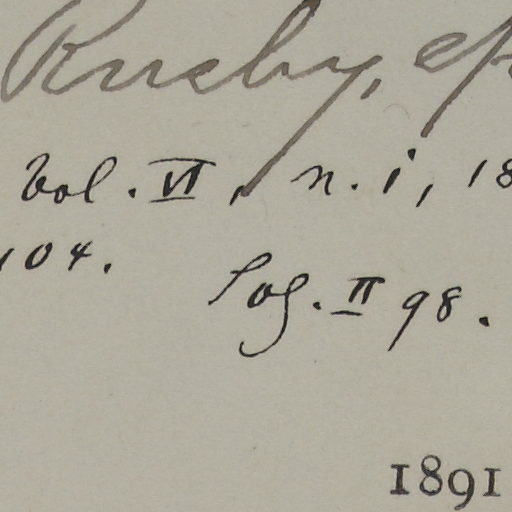 Rusby,
Vol. VI, n. i, 18
104. Log. II 98.
1891